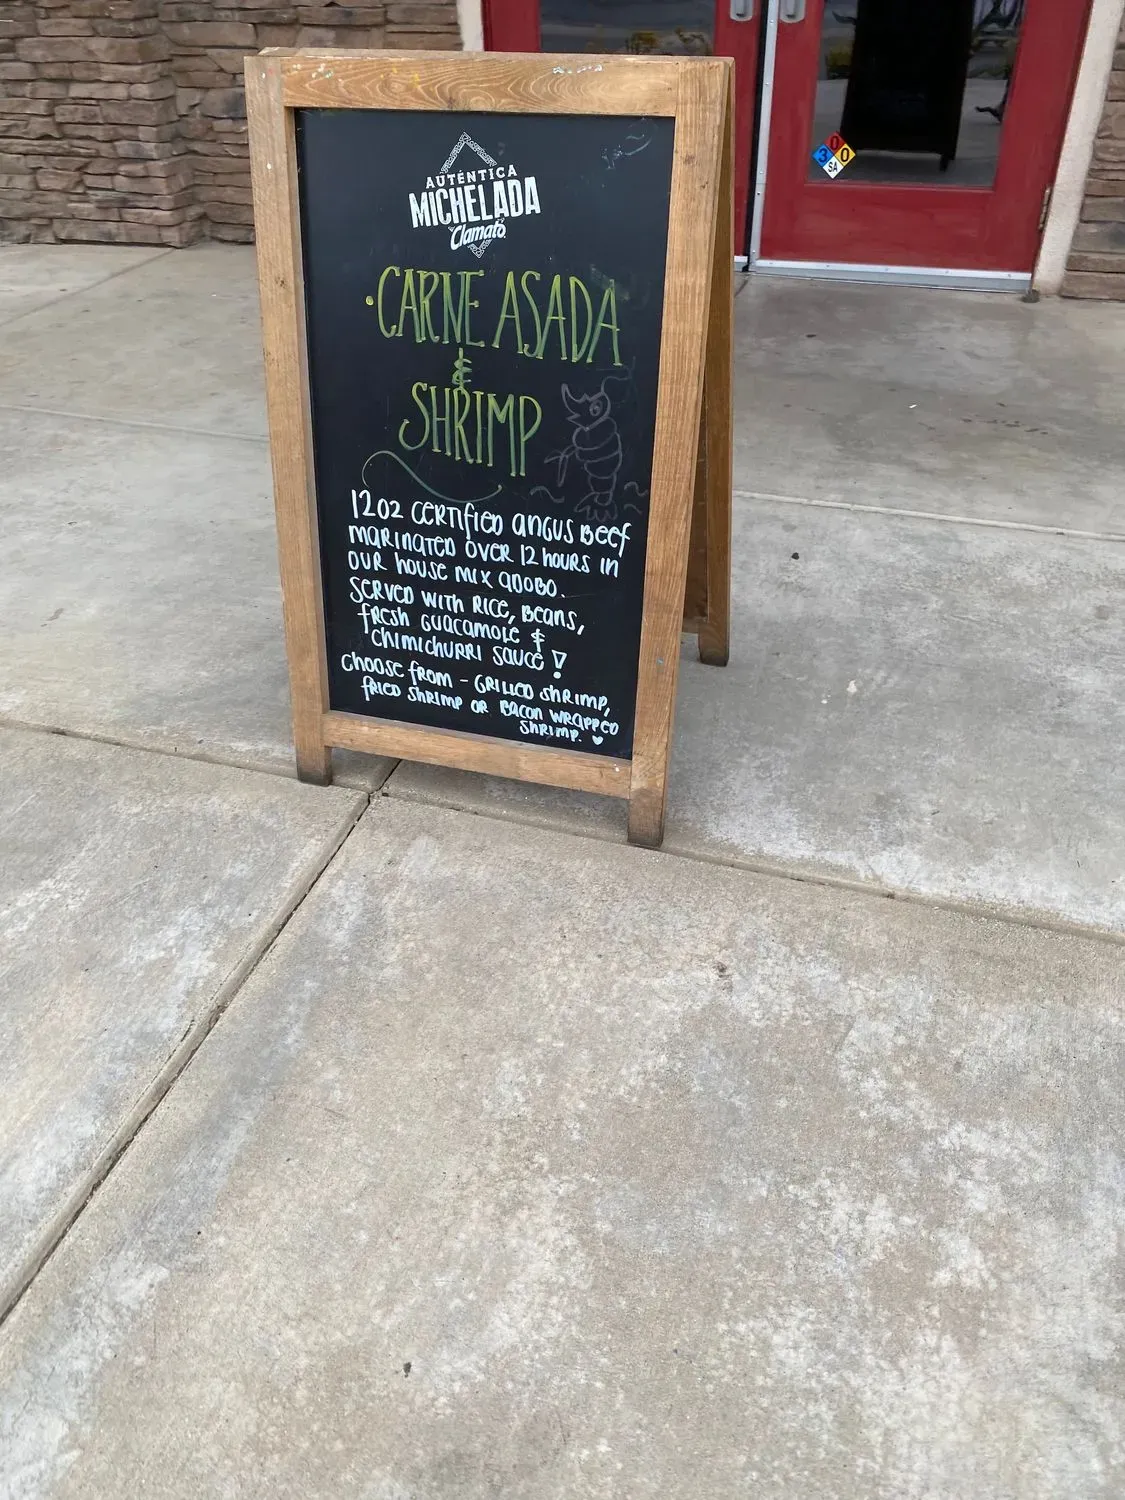 AUTÉNTICA
MICHELADA
Clamato
·CARNE ASADA
&
SHRIMP
12oz CERTIFIED ANGUS BEEF
MARINATED OVER 12 HOURS IN
OUR HOUSE MIX ADOBO.
SERVED WITH RICE, BEANS,
FRESH GUACAMOLE &
CHIMICHURRI SAUCE!
CHOOSE FROM - GRILLED SHRIMP,
FRIED SHRIMP OR BACON WRAPPED
SHRIMP.
0
3 0
SA